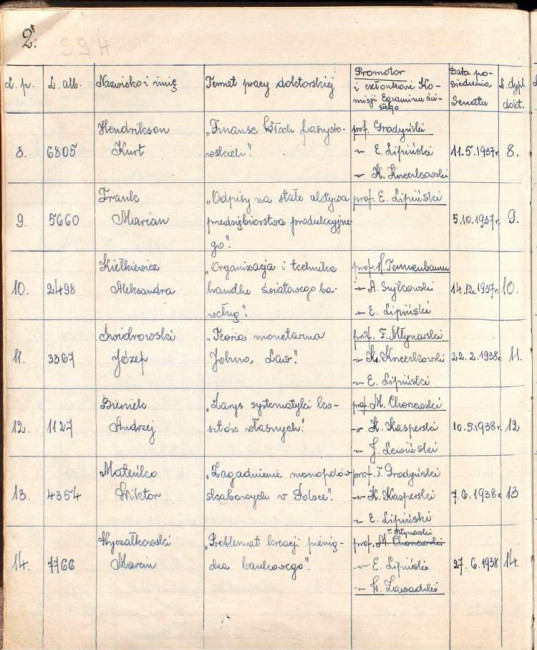 2.
L. p. L. alb. Nazwisko i imię Temat pracy doktorskiej Promotor i członkowie Komisji Egzaminu ścisłego Data posiedzenia Senatu L. dypl. dokt.
8. 6805 Hendrikson Kurt „Finanse Włoch faszystowskich". prof. Grodyński
" E. Lipiński
" 11.5.1937r. 8.
9. 5660 Frank Marian „Odpisy na stałe aktywa przedsiębiorstwa produkcyjnego". prof. E. Lipiński 5.10.1937r. 9.
10. 2498 Kiełkiewicz Aleksandra „Organizacja i technika handlu światowego bawełną". prof. Tennenbaum
" A.
" E. Lipiński 14.12.1937r. 10.
11. 3367 Świdrowski Józef „Teoria monetarna Johna Law". prof. F. Młynarski
"
" E. Lipiński 22.2.1938r. 11.
12. 1127 Bieniek Andrzej „Zarys systematyki kosztów własnych". prof.
" K. Kasperski
" J. Lewiński 10.5.1938r. 12
13. 4354 Matejko Wiktor „Zagadnienie monopolów skarbowych w Polsce". prof. T. Grodyński
" K. Kasperski
" E. Lipiński 7.6.1938r. 13
14. 1766 Wyczałkowski Marcin „Problemat kreacji pieniądza bankowego". prof. Młynarski
" E. Lipiński
" W. Zawadzki 27.6.1938 14.